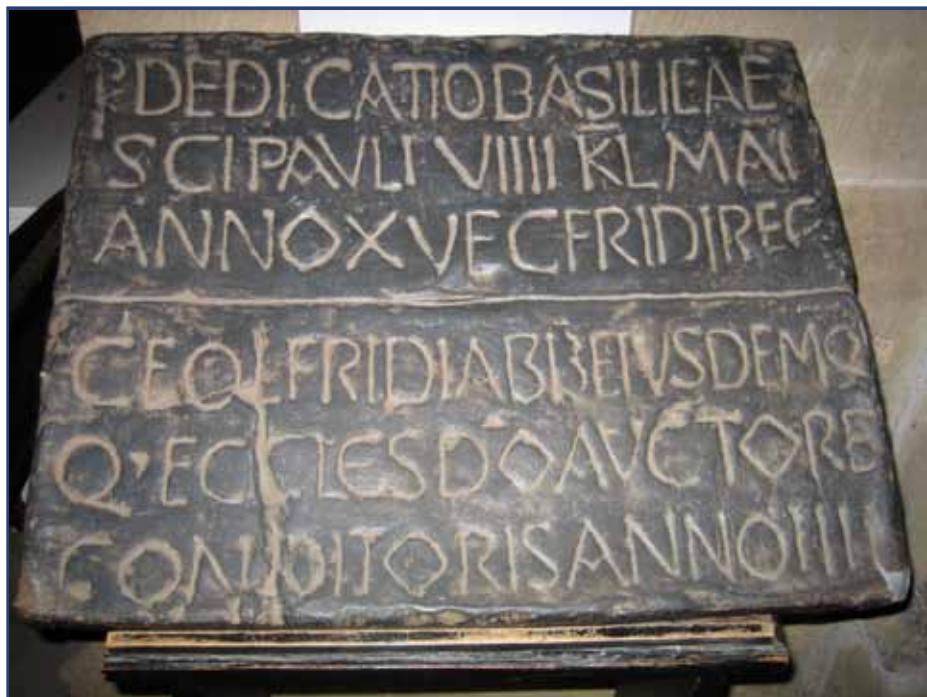 DEDICATIO BASILICAE
SCI PAVLI VIIII KL MAI
ANNO XV ECFRIDI REG
CEOLFRIDI ABB EIVSDEMQ
Q' ECCLES DO AVCTORE
CONDITORIS ANNO IIII